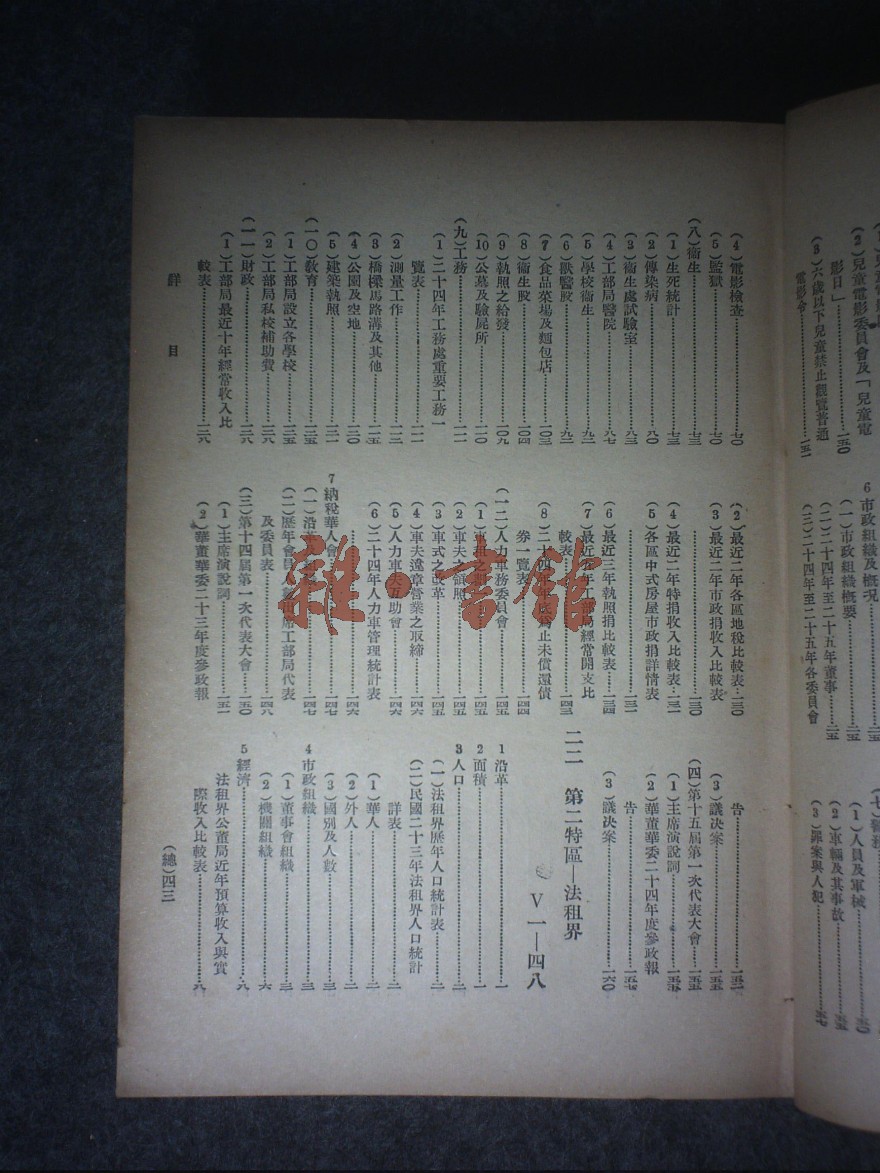 (4)電影檢查……七〇
(5)監獄……七〇
(八)衞生……七三
(1)生死統計……七三
(2)傳染病……八〇
(3)衞生處試驗室……八三
(4)工部局醫院……八七
(5)學校衞生……九二
(6)獸醫股……九二
(7)食品菜場及麵包店……一〇三
(8)衞生股……一〇四
(9)執照之給發……一〇九
(10)公墓及驗屍所……一一〇
(九)工務……一一一
(1)二十四年工務處重要工務一
覽表……一一一
(2)測量工作……一一二
(3)橋樑馬路溝及其他……一二五
(4)公園及空地……一三〇
(5)建築執照……
(一〇)教育……一三五
(1)工部局設立各學校……一三五
(2)工部局私校補助費……一三八
(一一)財政……一三八
(1)工部局最近十年經常收入比
較表……一三八
(2)最近二年各區地稅比較表…一三〇
(3)最近二年市政捐收入比較表
……一三〇
(4)最近二年特捐收入比較表…一三一
(5)各區中式房屋市政捐詳情表
……一三一
(6)最近三年執照捐比較表……一三四
(7)最近
年工部局經常開支比
較表……一四三
(8)二十四年
止未償還債
券一覽表……一四四
(一二)人力車務委員會……一四五
(1)車租之
……一四五
(2)車夫之領照……一四五
(3)車式之改革……一四五
(4)車夫違章營業之取締……一四六
(5)人力車夫互助會……一四六
(6)二十四年人力車管理統計表
……一四六
7納稅華人會……一四七
(一)沿革……一四七
(二)歷年會員人數
出席工部局代表
及委員表……一四八
(三)第十四屆第一次代表大會……一五〇
(1)主席演說詞……一五一
(2)華董華委二十三年度參政報
告……一五二
(3)議決案……一五五
(四)第十五屆第一次代表大會……一五五
(1)主席演說詞……一五五
(2)華董華委二十四年度參政報
告……一五七
(3)議決案……一六〇
二二 第二特區—法租界
V 一—四八
1沿革……一
2面積……一
3人口……二
(一)法租界歷年人口統計表……二
(二)民國二十三年法租界人口統計
詳表……二
(1)華人……二
(2)外人……二
(3)國別及人數……三
4市政組織……三
(1)董事會組織……三
(2)機關組織……六
5經濟……八
法租界公董局近年預算收入與實
際收入比較表……八
詳目
(總)四三
(2)兒童電影委員會及「兒童電
影日」……一五〇
(3)六歲以下兒童禁止觀覽普通
電影令……一五一
6市政組織及概況……二五
(一)市政組織概要……二五
(二)二十四年至二十五年董事……二五
(三)二十四年至二十五年各委員會
(1)人員及軍械……五〇
(2)車輛及其事故……五五
(3)罪案與人犯……五七
雜·書館